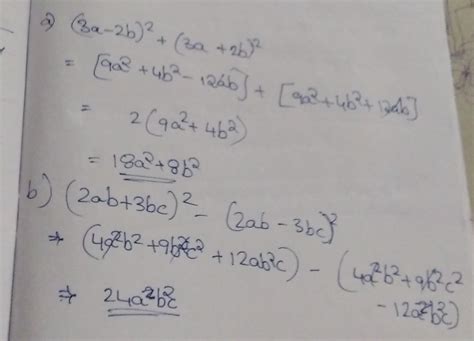 a) (3a-2b)² + (3a+2b)²
= [9a²+4b²-12ab] + [9a²+4b²+12ab]
= 2(9a²+4b²)
= 18a²+8b²
b) (2ab+3bc)² - (2ab-3bc)²
⇒ (4a²b²+9b²c²+12ab²c) - (4a²b²+9b²c²
-12a²b²c)
⇒ 24a²b²c